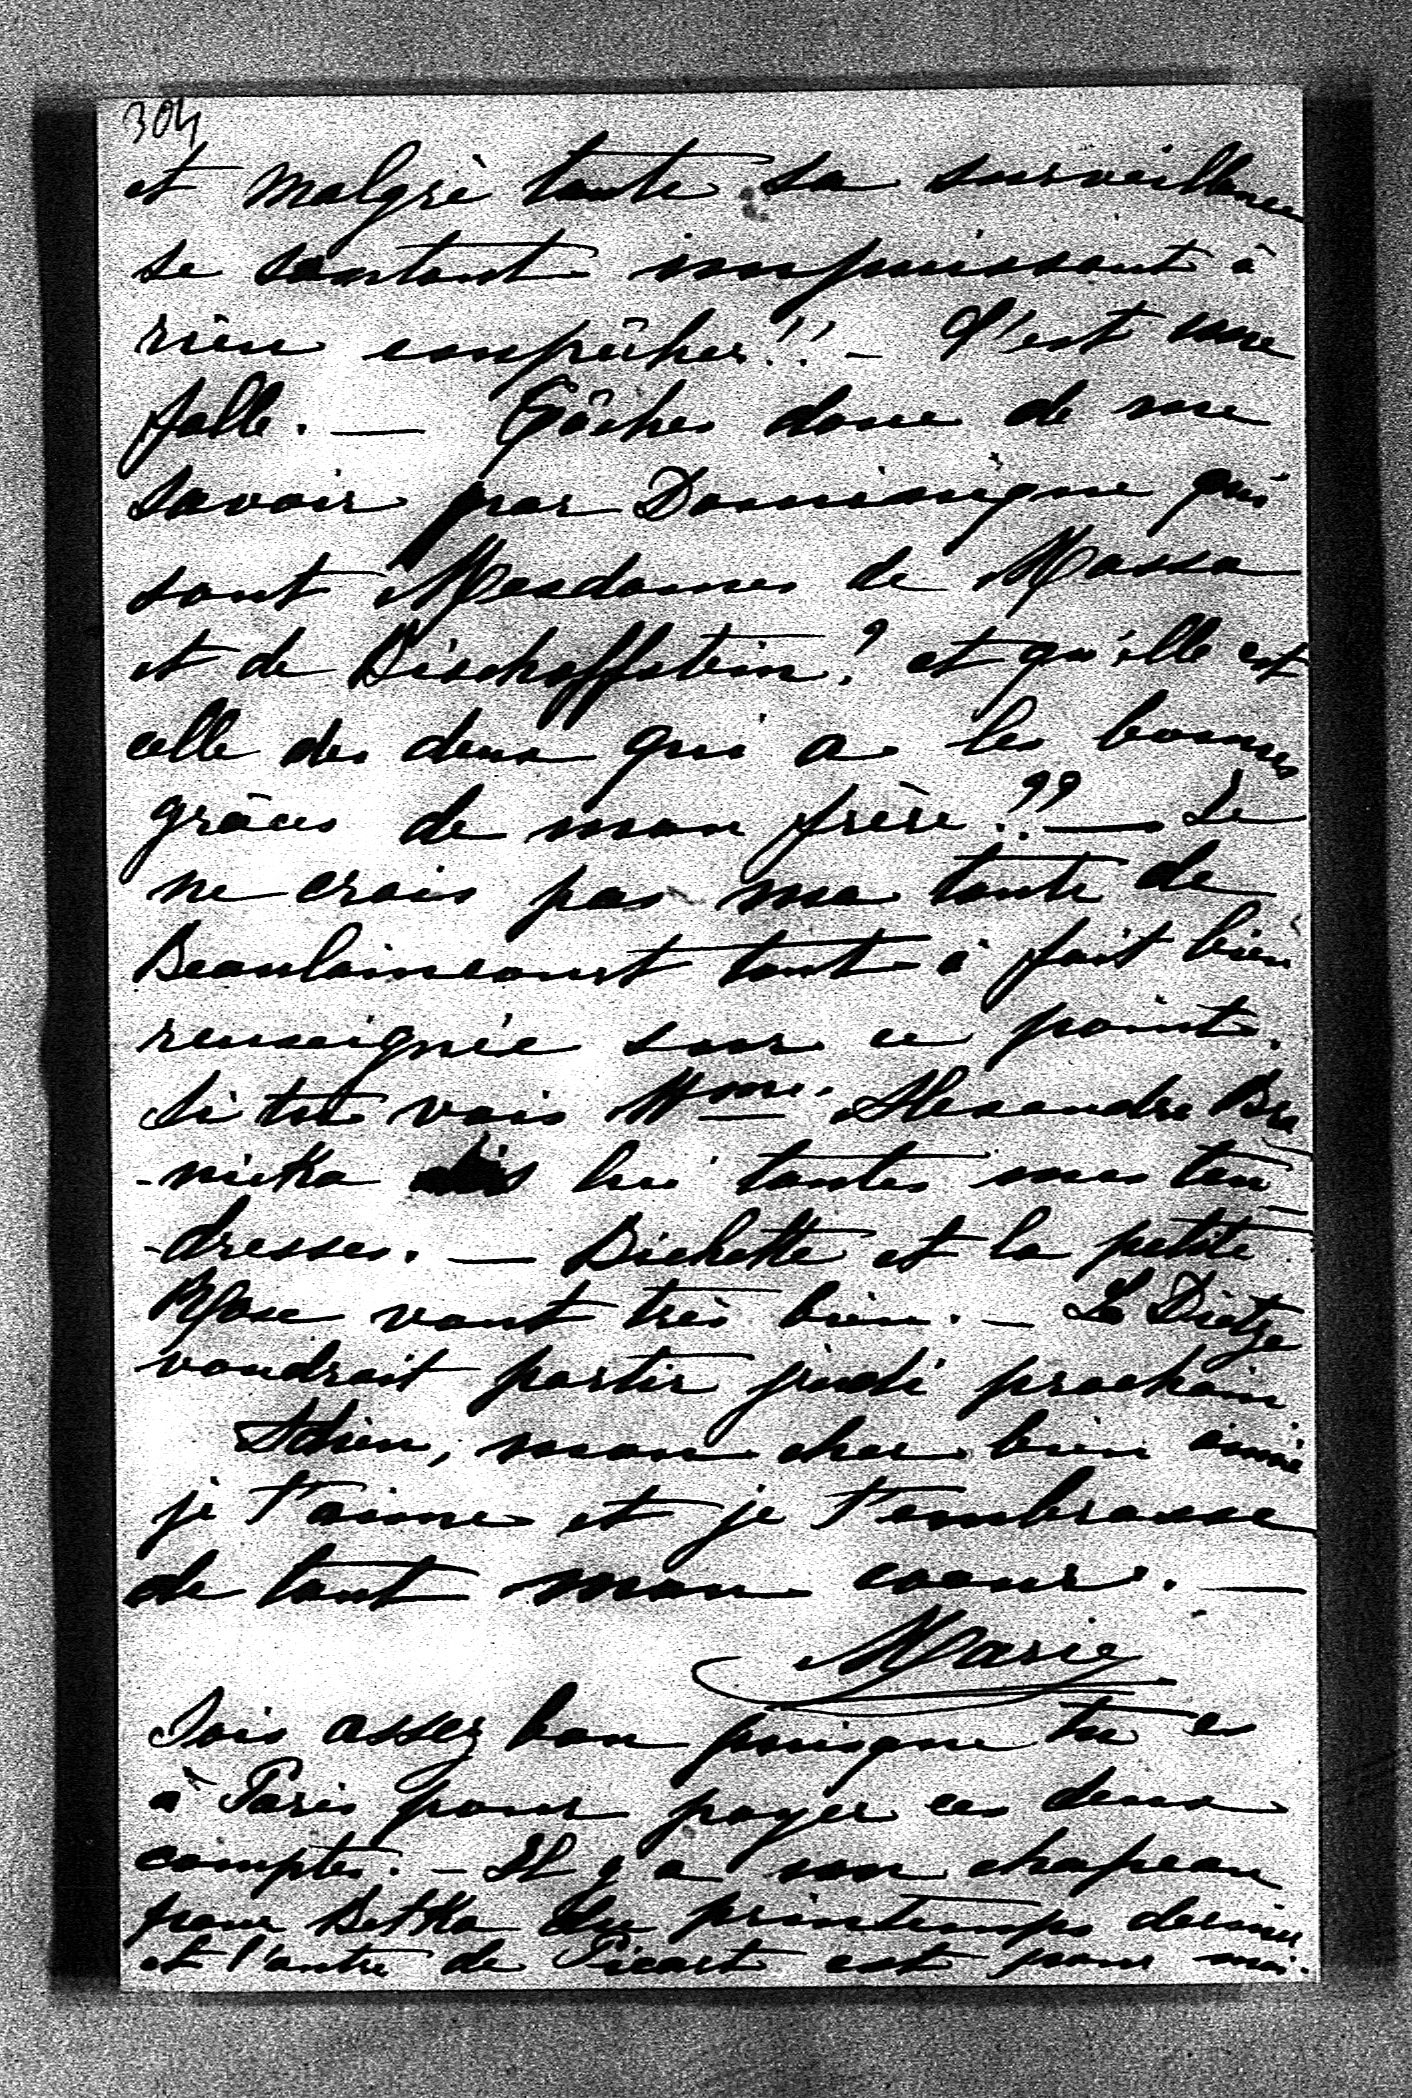 304
et malgré toute sa surveillance
se sentant impuissant à
rien empêcher!! – C'est une
folle. — Tâches donc de me
savoir par Dominique qui
sont Mesdames de Massa
et de Bischoffstein? et qu'elle est
celle des deux qui a les bonnes
grâces de mon frère?? — Je
ne crois pas ma tante de
Beaulaincourt tout à fait bien
renseignée sur ce point.
Si tu vois Mme Alexandre Bra
-nicka dis lui toutes mes ten
-dresses. — Bichette et la petite
Rose vont très bien. — La Dietze
voudrait partir jeudi prochain.
Adieu, mon cher bien aimé
je t'aime et je t'embrasse
de tout mon coeur. —
Marie
Sois assez bon puisque tu es
à Paris pour payer ces deux
comptes. – Il y a un chapeau
pour Betka du printemps dernier
et l'autre de Picart est pour moi.